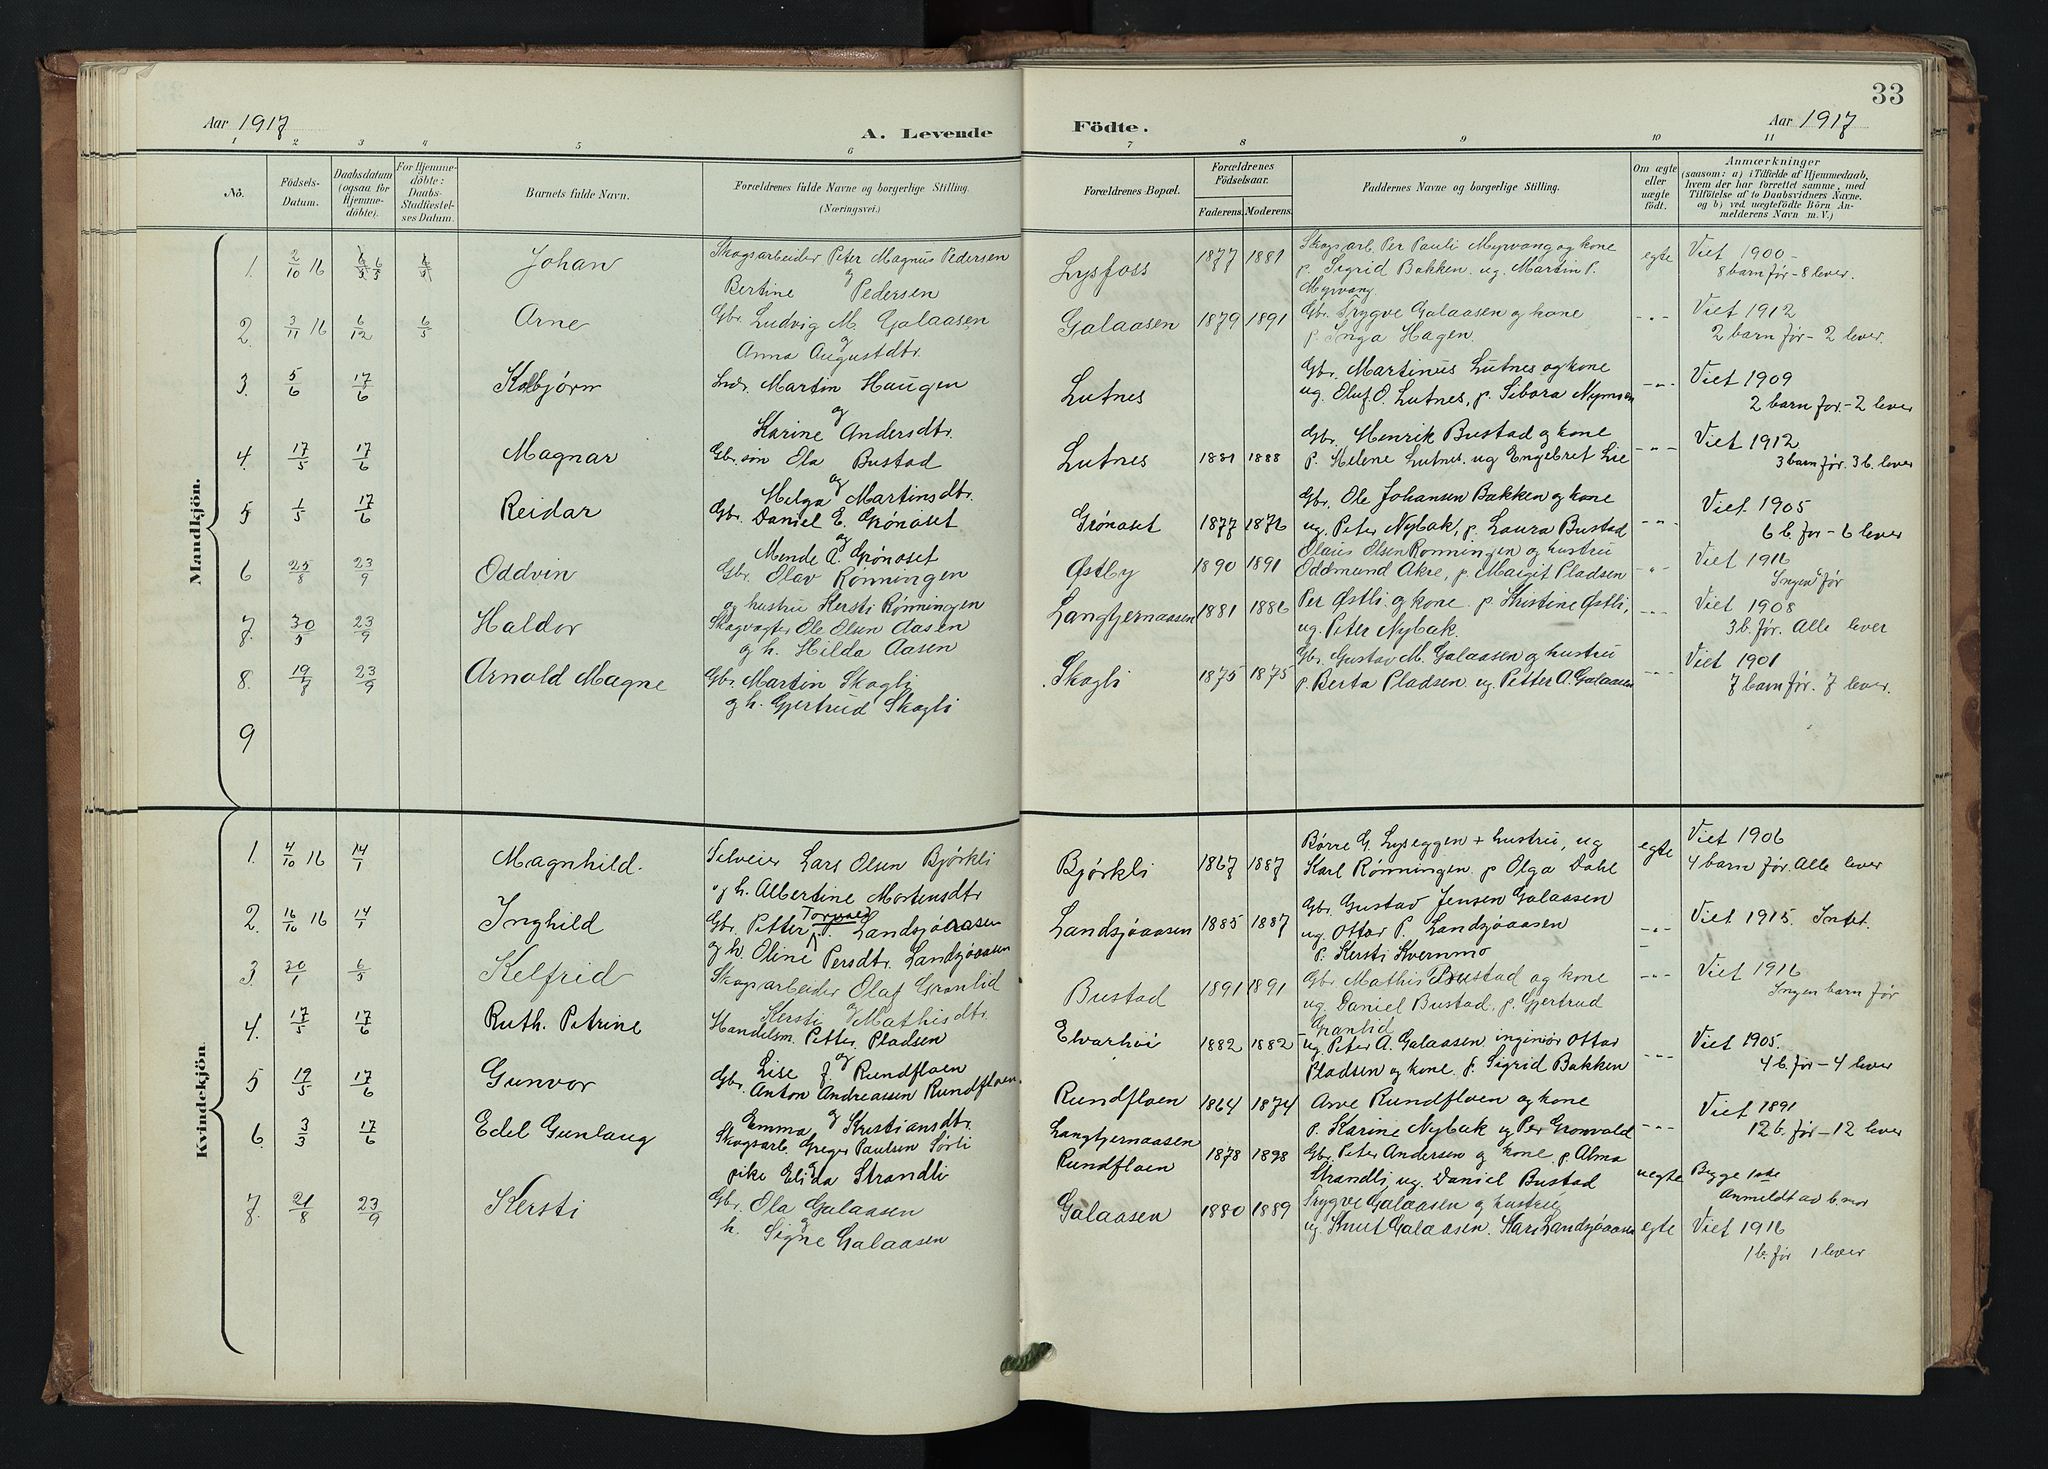 33
Aar 1917
A. Levende Födte.
Aar 1917
1 2 3 4 5 6 7 8 9 10 11
No.
Födsels-Datum.
Daabsdatum (ogsaa for Hjemme-döbte).
For Hjemme-döbte: Daabs-Stadfæstel-ses Datum.
Barnets fulde Navn.
Forældrenes fulde Navne og borgerlige Stilling.
(Næringsvei.)
Forældrenes Bopæl.
Forældrenes Födselsaar.
Faderens. Moderens.
Faddernes Navne og borgerlige Stilling.
Om ægte eller uægte födt.
Anmærkninger
(saasom: a) i Tilfælde af Hjemmedaab,
hvem der har forrettet samme, med
Tilföielse af to Daabsvidners Navne.
og b) ved uægtefödte Börn An-
melderens Navn m. V.)
Mandkjön.
1. 2/10 16 6/5 Johan
Skogsarbeider Peter Magnus Pedersen
og
Bertine Pedersen
Lysfoss 1877 1881
Skogsarb. Per Pauli Myrvang og kone
p. Sigrid Bakken. ug. Martin P.
Myrvang.
egte
Viet 1900 -
8 barn før - 8 lever.
2. 3/11 16 6/12 6/5 Arne
Gbr. Ludvig M. Galaasen
og
Anna Augustdtr.
Galaasen 1879 1891
Gbr. Trygve Galaasen og kone
p. Inga Hagen.
- " -
Viet 1912
2 barn før - 2 lever.
3. 5/6 17/6 Kolbjørn
Martin Haugen
og
Karine Andersdtr.
Lutnes
Gbr. Martinus Lutnes og kone
ug. Oluf O. Lutnes, p. Sibora Nymoen
- " -
Viet 1909
2 barn før - 2 lever
4. 17/5 17/6 Magnar
Gbr. søn Ola Bustad
og
Helga Martinsdtr.
Lutnes 1881 1888
Gbr. Henrik Bustad og kone
p. Helene Lutnes. ug Engebret Lie
- " -
Viet 1912
3 barn før. 3 b. lever
5 1/5 17/6 Reidar
Gbr. Daniel E. Grønoset
og
Mende A. Grønoset
Grønoset 1877 1876
Gbr. Ole Johansen Bakken og kone
ug. Peter Nybak, p. Laura Bustad
- " -
Viet 1905
6 b. før - 6 lever
6 25/8 23/9 Oddvin
Gbr. Olav Rønningen
og hustru Kersti Rønningen
Østby 1890 1891
Olaus Olsen Rønningen og hustru
Oddmund Akre, p. Margit Pladsen
- " -
Viet 1916
Ingen før
7. 30/5 23/9 Haldor
Skogvogter Ole Olsen Aasen
og h. Hilda Aasen
Langtjernaasen 1881 1886
Per Østli og kone. p. Kristine Østli,
ug. Peter Nybak.
- " -
Viet 1908
3 b. før. Alle lever
8. 19/8 23/9 Arnold Magne
Gbr. Martin Skogli
og h. Gjertrud Skogli
Skogli 1875 1875
Gbr. Gustav M. Galaasen og hustru
p. Berta Pladsen. ug. Petter A. Galaasen
- " -
Viet 1901
7 barn før. 7 lever.
9
Kvindekjön.
1. 4/10 16 14/1 Magnhild.
Selveier Lars Olsen Bjørkli
og h. Albertine Mortensdtr
Bjørkli 1867 1887
Børre G. Lyseggen + hustru, ug
Karl Rønningen. p Olga Dahl
egte
Viet 1906
4 barn før. Alle lever
2. 16/10 16 14/1 Inghild
Gbr. Petter P. Landsjøaasen
og h. Oline Persdtr. Landsjøaasen
Landsjøaasen 1885 1887
Gbr. Gustav Jensen Galaasen
ug. Ottar P. Landsjøaasen
p. Kersti Kvernmo
- " -
Viet 1915. Intet.
3. 30/1 6/5 Kelfrid
Skogsarbeider Olaf Granlid
og
Kersti Mathisdtr.
Bustad 1891 1891
Gbr Mathis Bustad og kone
ug. Daniel Bustad, p. Gjertrud
Granlid
- " -
Viet 1916
Ingen barn før
4. 17/5 17/6 Ruth. Petrine
Handelsm. Petter Pladsen
og
Lise J. Rundfloen
Elvarhøi 1882 1882
ug. Peter A. Galaasen ingeniør Ottar
Pladsen og kone p. Sigrid Bakken
- " -
Viet 1905.
4 b. før - 4 lever
5 19/5 17/6 Gunvor
Gbr. Anton Andreassen Rundfloen
og
Emma Kristiansdtr.
Rundfloen 1864 1874
Arve Rundfloen og kone
p. Karine Nybak ug Per Grønvold
- " -
Viet 1891
12 b. før - 12 lever
6. 3/3 17/6 Edel Gunlaug
Skogsarb. Greger Paulsen Sørli
pike Elida Strandli
Langtjernaasen
Rundfloen 1878 1898
Gbr. Peter Andersen og kone. p Alma
Strandli, ug. Daniel Bustad
uegte
Begge 1ste
Anmeldt av b. mor
7. 21/8 23/9 Kersti
Gbr. Ola Galaasen
og
h. Signe Galaasen
Galaasen 1880 1889
Trygve Galaasen og hustru
ug. Knut Galaasen. Kari Landsjøaasen
egte
Viet 1916
1 b. før 1 lever